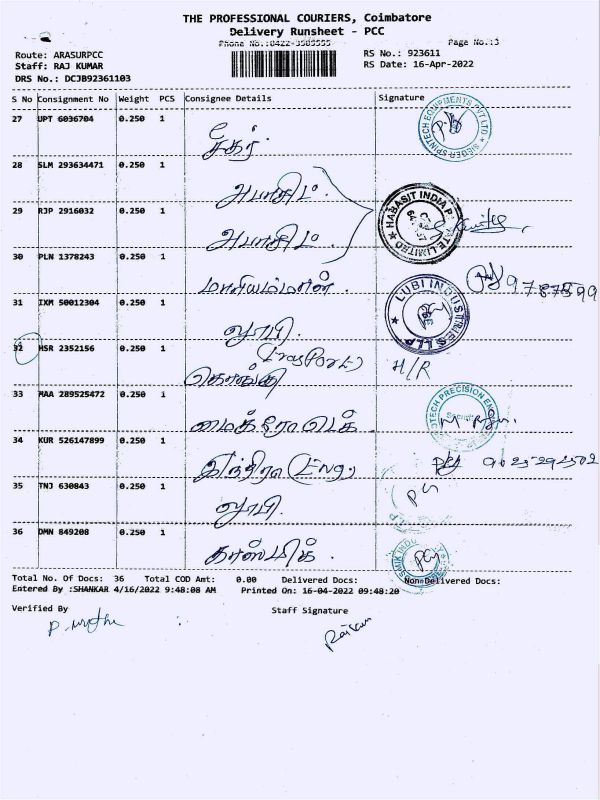 THE PROFESSIONAL COURIERS, Coimbatore
Delivery Runsheet - PCC
Phone No.:0422-3585555
Page No.:3
Route: ARASURPCC
RS No.: 923611
Staff: RAJ KUMAR
RS Date: 16-Apr-2022
DRS No.: DCJB92361103
S No Consignment No Weight PCS Consignee Details Signature
27 UPT 6036704 0.250 1
SIEGER SPINTECH EQUIPMENTS PVT LTD
28 SLM 293634471 0.250 1
அபாசிட்
HABASIT INDIA PRIVATE LIMITED
29 RJP 2916032 0.250 1
அபாசிட்
30 PLN 1378243 0.250 1
மாரியம்மாள்.
31 IXM 50012304 0.250 1
லூபி.
LUBI INDUSTRIES LLP
32 MSR 2352156 0.250 1
H/R
33 MAA 289525472 0.250 1
மைக்ரோடெக்
PRECISION
34 KUR 526147899 0.250 1
இந்திரா (Eng)
35 TNJ 630843 0.250 1
லூபி.
36 DMN 849208 0.250 1
காஸ்மிக்.
Total No. Of Docs: 36 Total COD Amt: 0.00 Delivered Docs: Non-Delivered Docs:
Entered By :SHANKAR 4/16/2022 9:48:08 AM Printed On: 16-04-2022 09:48:20
Verified By
Staff Signature